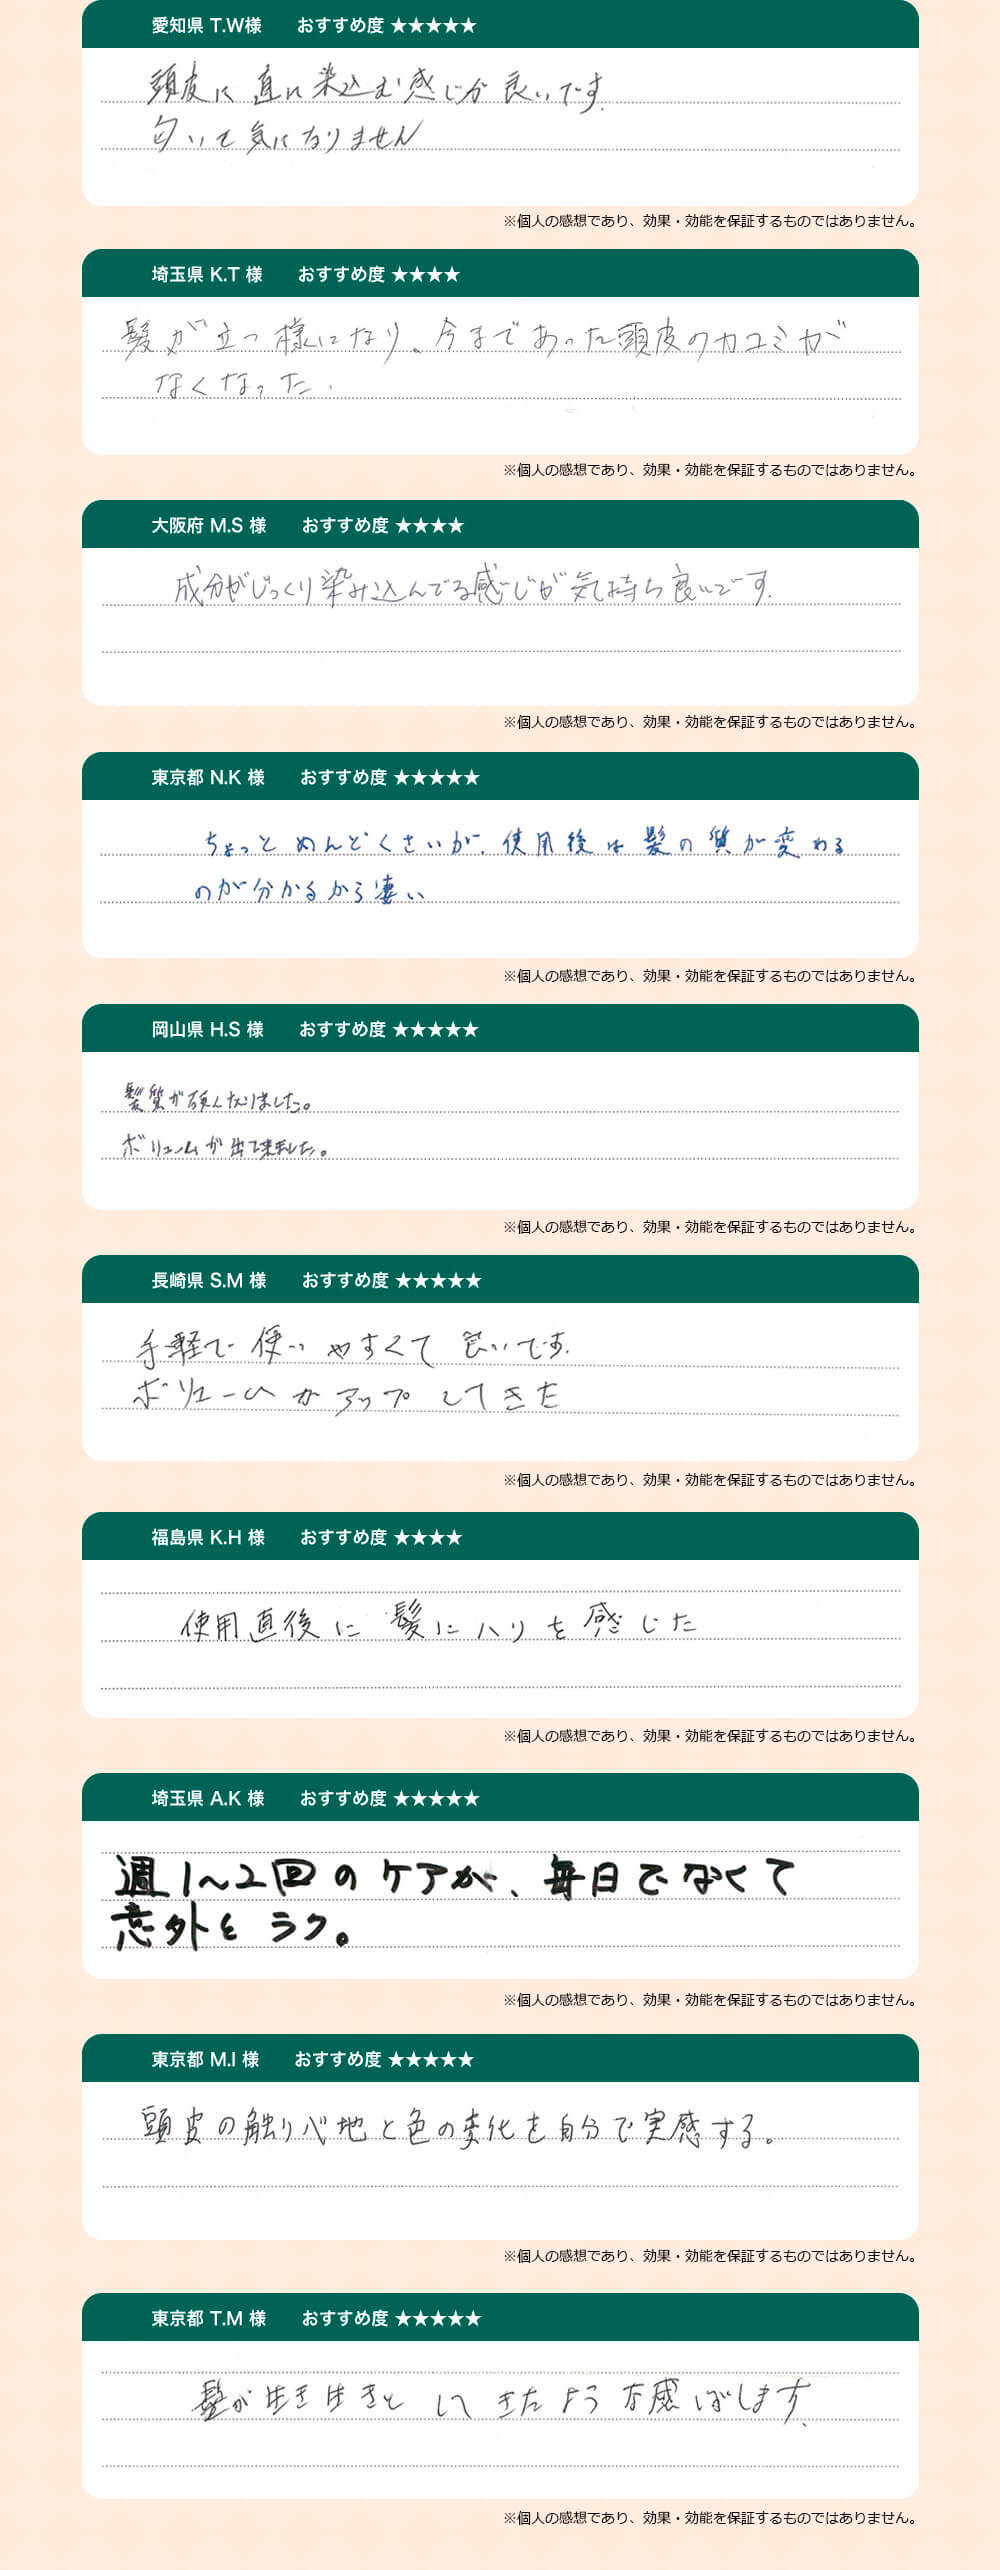 愛知県 T.W様 おすすめ度 ★★★★★
頭皮に直に染込む感じが良いです.
匂いも気になりません
※個人の感想であり、効果・効能を保証するものではありません。
埼玉県 K.T 様 おすすめ度 ★★★★
髪が立つ様になり、今まであった頭皮のカユミが
なくなった.
※個人の感想であり、効果・効能を保証するものではありません。
大阪府 M.S 様 おすすめ度 ★★★★
成分がじっくり染み込んでる感じが気持ち良いです.
※個人の感想であり、効果・効能を保証するものではありません。
東京都 N.K 様 おすすめ度 ★★★★★
ちょっとめんどくさいが、使用後は髪の質が変わる
のが分かるから凄い
※個人の感想であり、効果・効能を保証するものではありません。
岡山県 H.S 様 おすすめ度 ★★★★★
髪質が
ボリュームが出て来ました。
※個人の感想であり、効果・効能を保証するものではありません。
長崎県 S.M 様 おすすめ度 ★★★★★
手軽で使いやすくて良いです.
ボリュームがアップしてきた
※個人の感想であり、効果・効能を保証するものではありません。
福島県 K.H 様 おすすめ度 ★★★★
使用直後に髪にハリを感じた
※個人の感想であり、効果・効能を保証するものではありません。
埼玉県 A.K 様 おすすめ度 ★★★★★
週1〜2回のケアが、毎日でなくて
意外とラク。
※個人の感想であり、効果・効能を保証するものではありません。
東京都 M.I 様 おすすめ度 ★★★★★
頭皮の触り心地と色の変化を自分で実感する。
※個人の感想であり、効果・効能を保証するものではありません。
東京都 T.M 様 おすすめ度 ★★★★★
髪が生き生きとしてきたような感じがします.
※個人の感想であり、効果・効能を保証するものではありません。